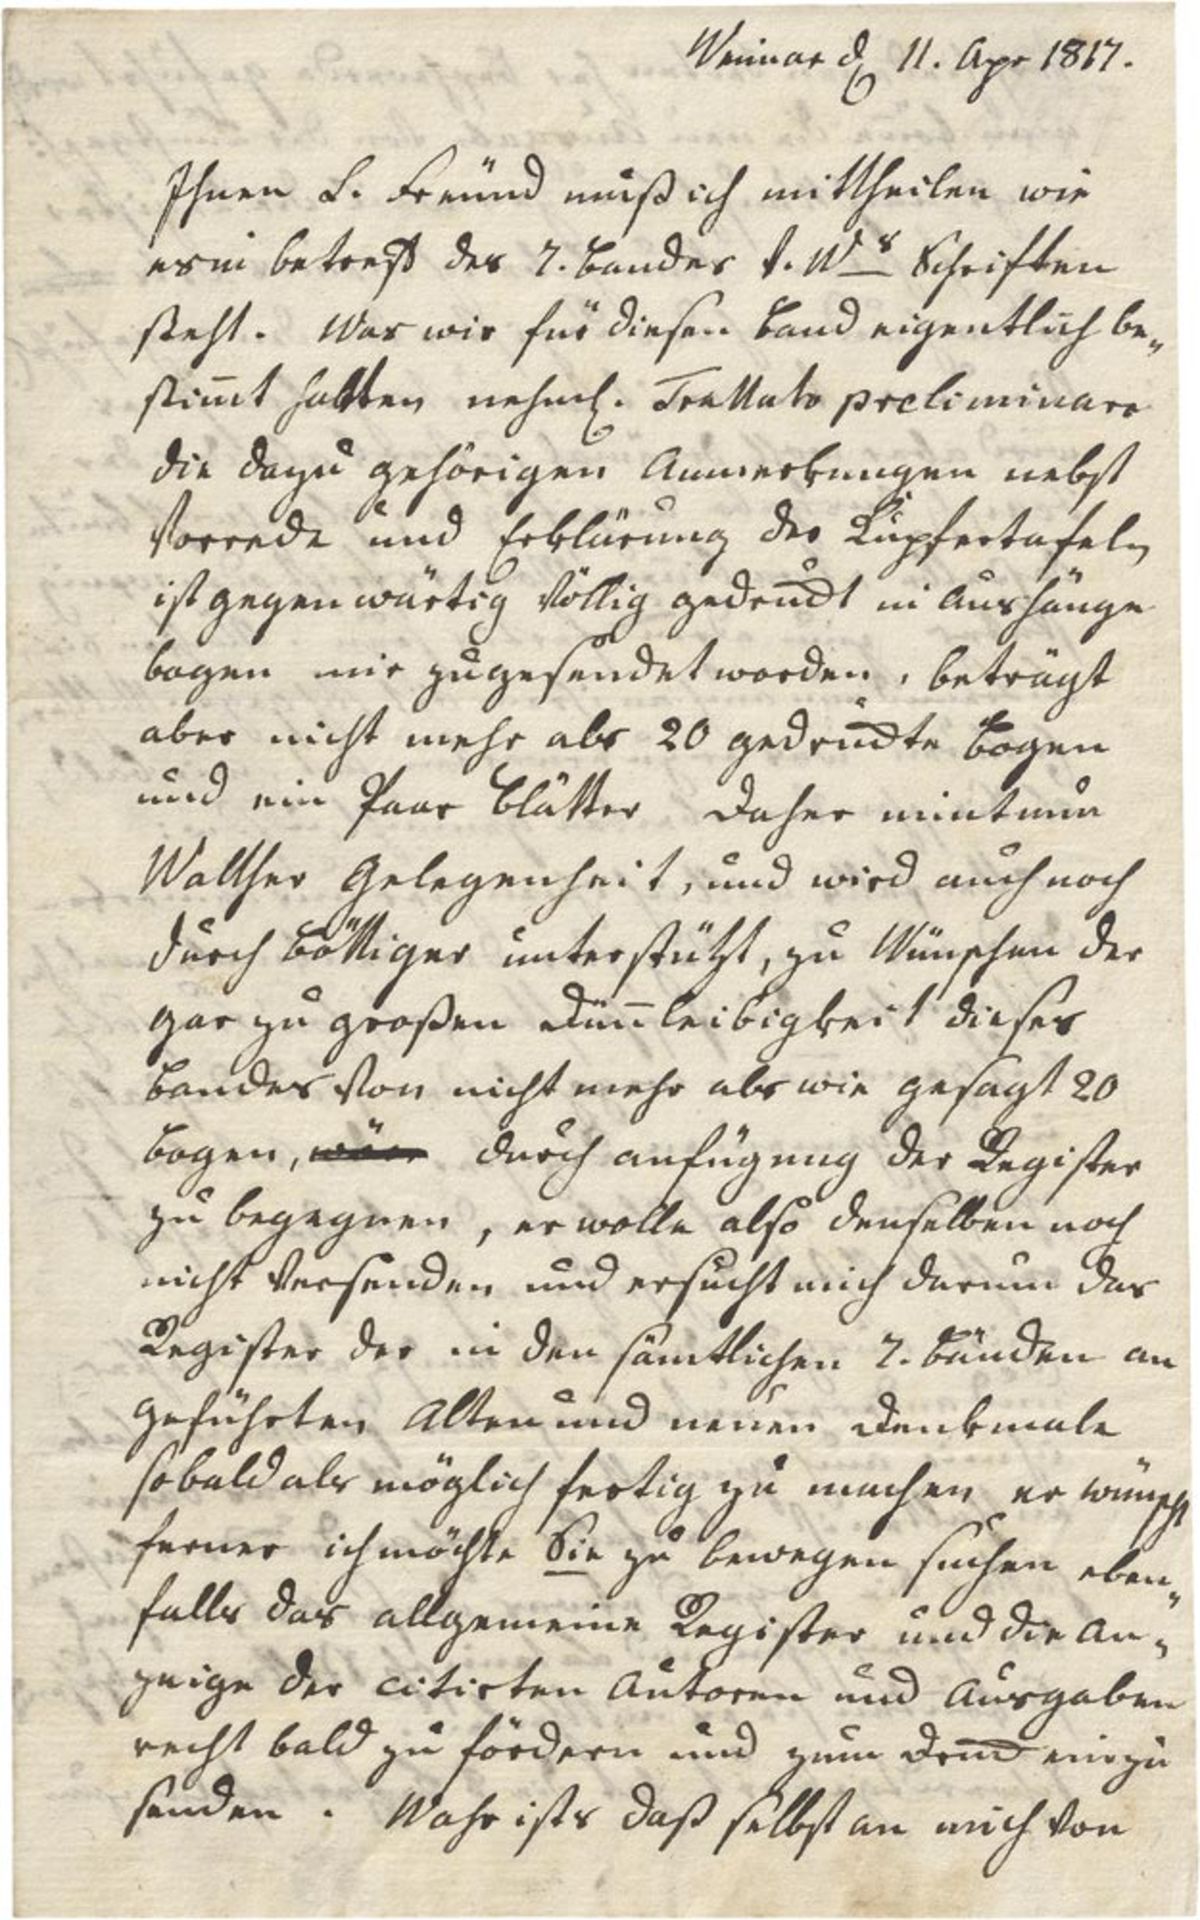 Weimar d. 11. Apr 1817.
Ihnen L. Freund muß ich mittheilen wie
es in betreff des 7. Bandes v. Ws Schriften
steht. Was wir für diesen Band eigentlich be„
stim̄t hatten nehml. Trattato preliminare
die dazu gehörigen Anmerkungen nebst
Vorrede und Erklärung der Kupfertafeln
ist gegenwärtig völlig gedruckt in Aushänge
bogen mir zugesendet worden, beträgt
aber nicht mehr als 20 gedruckte Bogen
und ein Paar Blätter Daher nimt nun
Walther Gelegenheit, und wird auch noch
durch Böttiger unterstützt, zu Wünschen der
gar zu großen Dün̄leibigkeit dieses
Bandes von nicht mehr als wie gesagt 20
Bogen, wäre durch anfügung der Register
zu begegnen, er wolle also denselben noch
nicht versenden und ersucht mich darum das
Register der in den sämtlichen 7. Bänden an
geführten Alten und neuen Denkmale
sobald als möglich fertig zu machen er wünscht
ferner ich möchte Sie zu bewegen suchen eben„
falls das allgemeine Register und die An„
zeige der citirten Autoren und Ausgaben
recht bald zu fördern und zum Druck einzu
senden. Wahr ists daß selbst an mich von